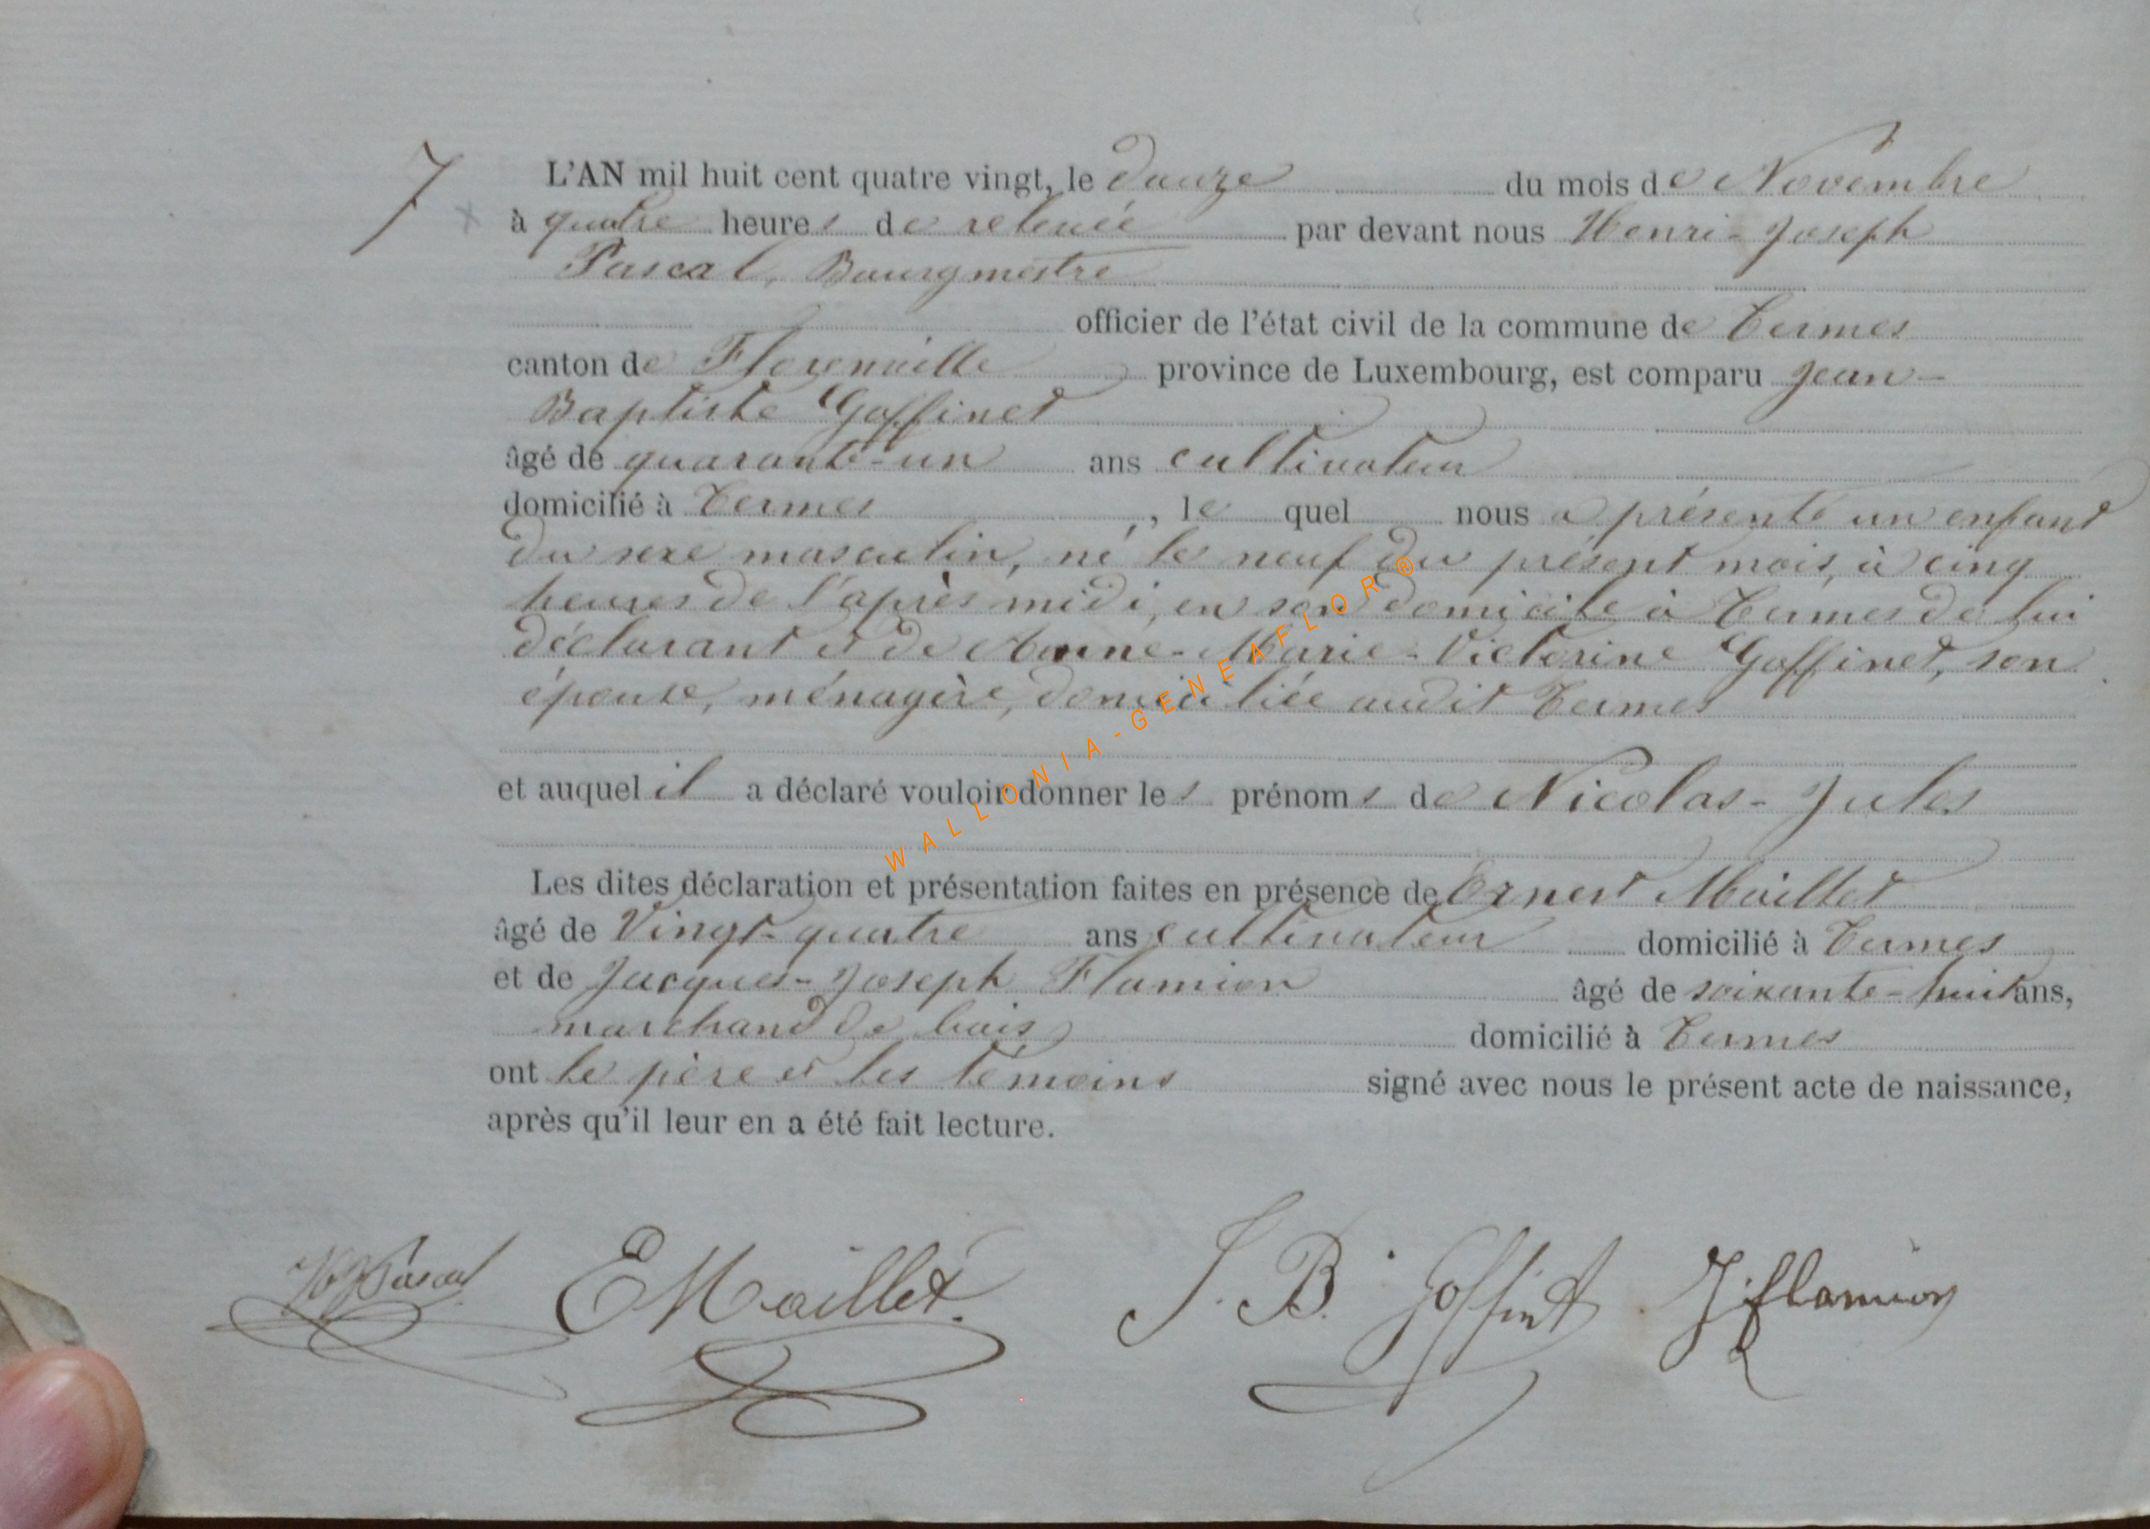 7
L'AN mil huit cent quatre vingt, le douze du mois de Novembre
à quatre heures de relevée par devant nous Henri-Joseph
Pascal, Bourgmestre
officier de l'état civil de la commune de Termes
canton de Florenville province de Luxembourg, est comparu Jean-
Baptiste Goffinet
âgé de quarante-un ans cultivateur
domicilié à Termes, le quel nous a présenté un enfant
du sexe masculin, né le neuf du présent mois, à cinq
heures de l'après midi, en son domicile à Termes de lui
déclarant et de Anne-Marie-Victorine Goffinet, son
épouse, ménagère, domiciliée audit Termes
et auquel il a déclaré vouloir donner les prénoms de Nicolas-Jules
Les dites déclaration et présentation faites en présence de Ernest Maillet
âgé de Vingt-quatre ans cultivateur domicilié à Termes
et de Jacques-Joseph Flamion âgé de soixante-huit ans,
marchand de bois domicilié à Termes
ont le père et les témoins signé avec nous le présent acte de naissance,
après qu'il leur en a été fait lecture.
HJPascal EMaillet. J. B. Goffinet J. flamion
WALLONIA-GENEAFLOR®